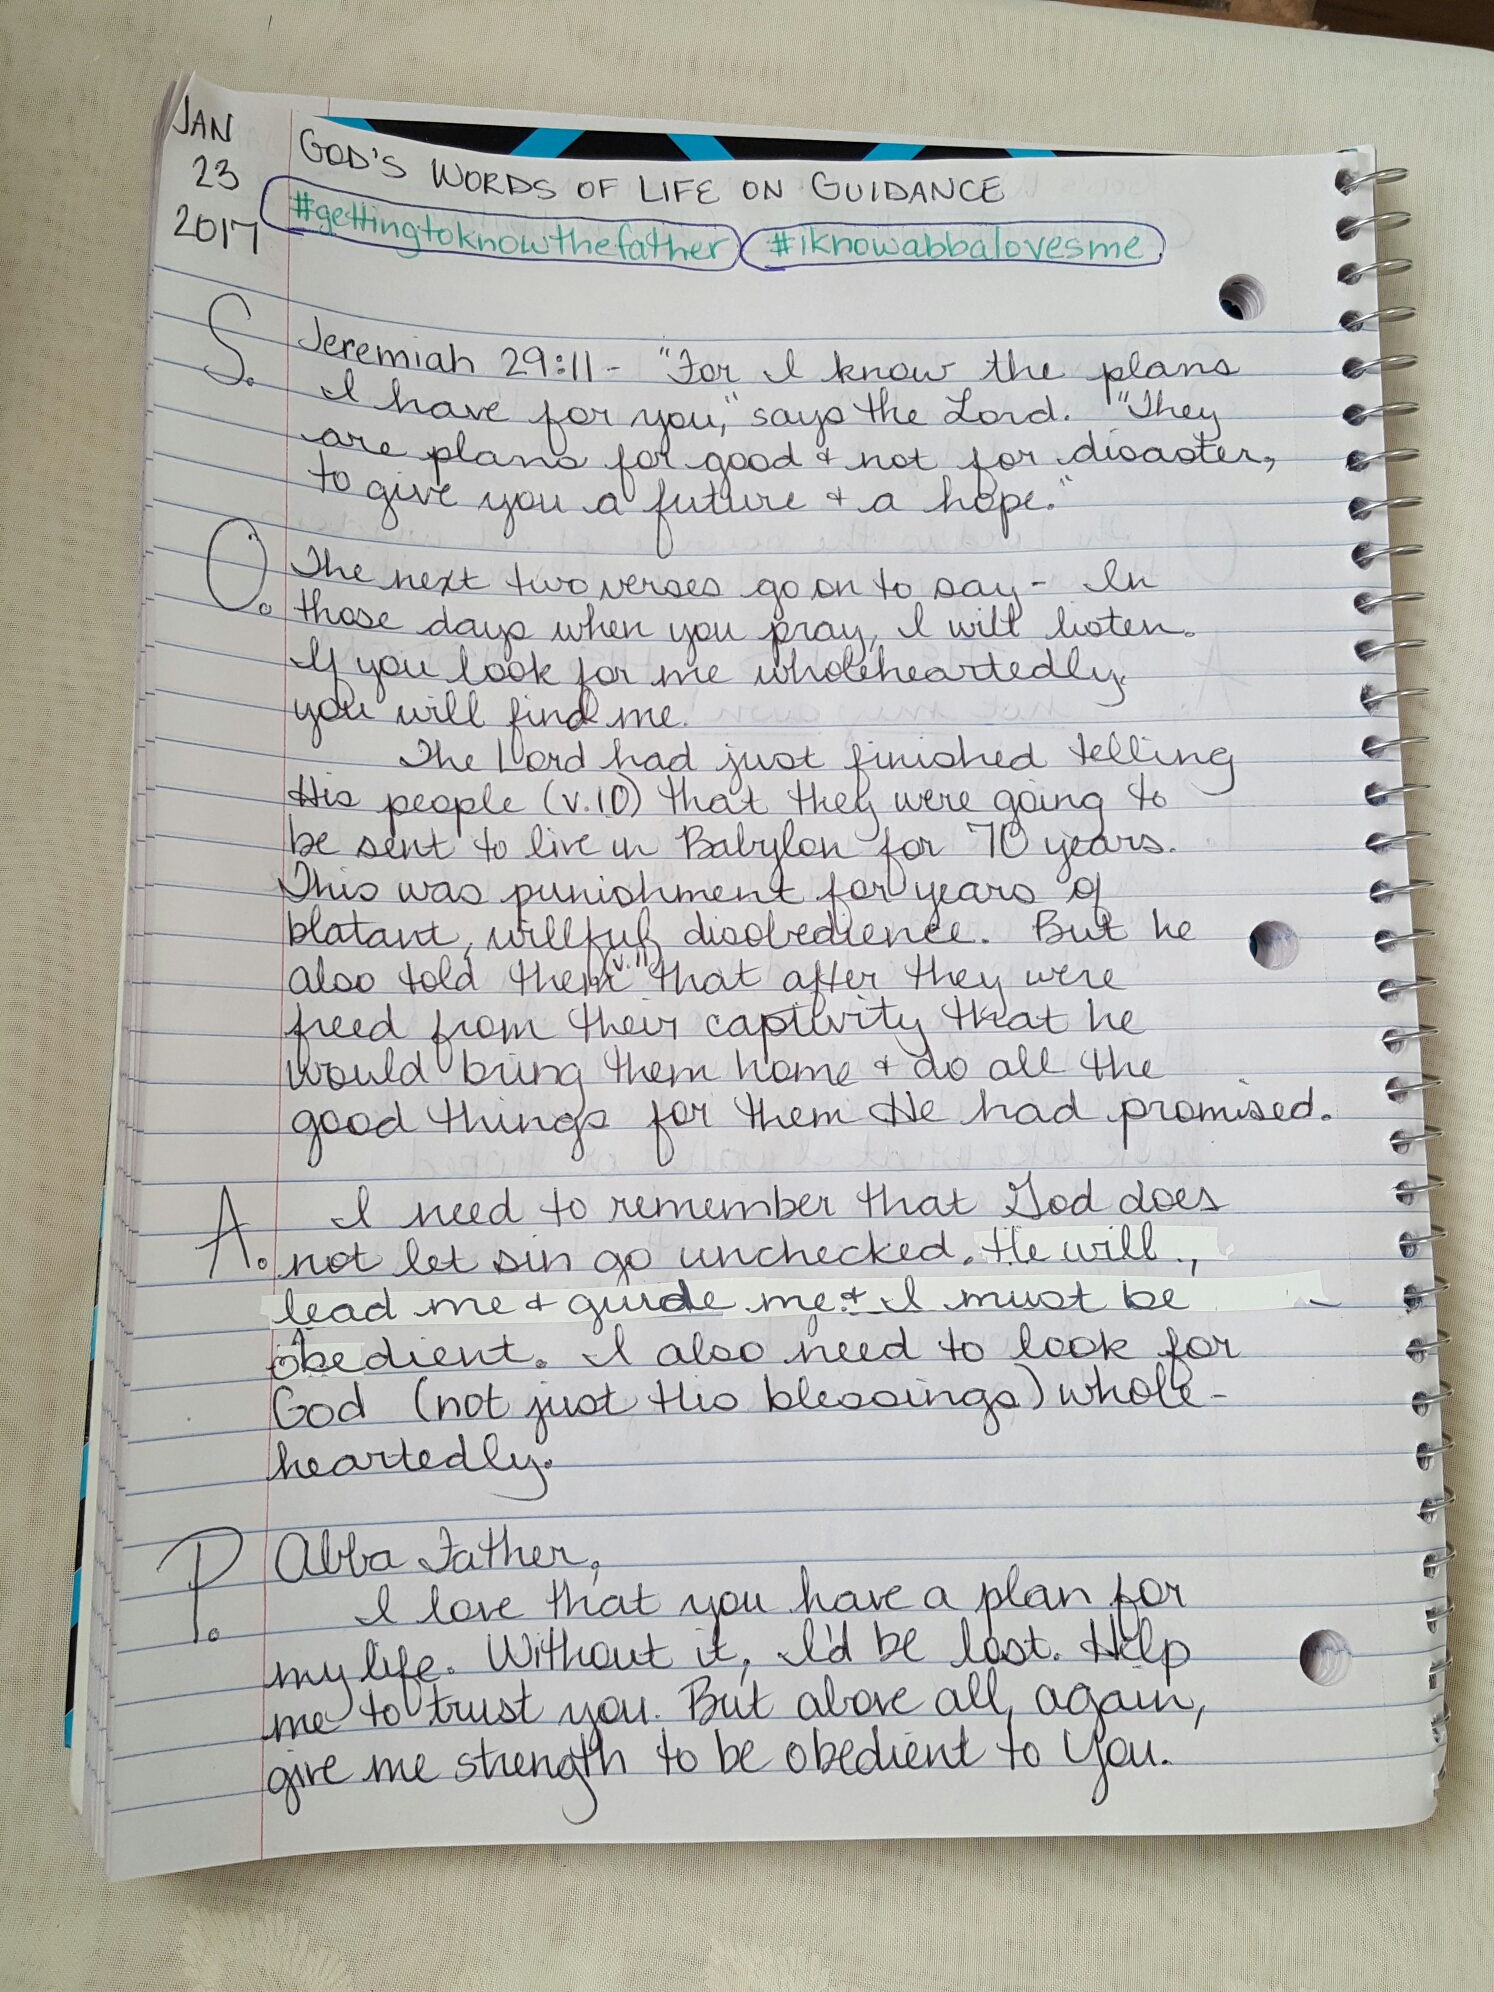 JAN
23
2017
GOD'S WORDS OF LIFE ON GUIDANCE
#gettingtoknowthefather #iknowabbalovesme
S. Jeremiah 29:11 - "For I know the plans
I have for you," says the Lord. "They
are plans for good & not for disaster,
to give you a future & a hope."
O. The next two verses go on to say - In
those days when you pray, I will listen.
If you look for me wholeheartedly,
you will find me.
The Lord had just finished telling
His people (v.10) that they were going to
be sent to live in Babylon for 70 years.
This was punishment for years of
blatant, willful disobedience. But he
also told them (v.11) that after they were
freed from their captivity that he
would bring them home & do all the
good things for them He had promised.
A. I need to remember that God does
not let sin go unchecked. He will
lead me & guide me & I must be
obedient. I also need to look for
God (not just His blessings) whole-
heartedly.
P. Abba Father,
I love that you have a plan for
my life. Without it, I'd be lost. Help
me to trust you. But above all, again,
give me strength to be obedient to You.